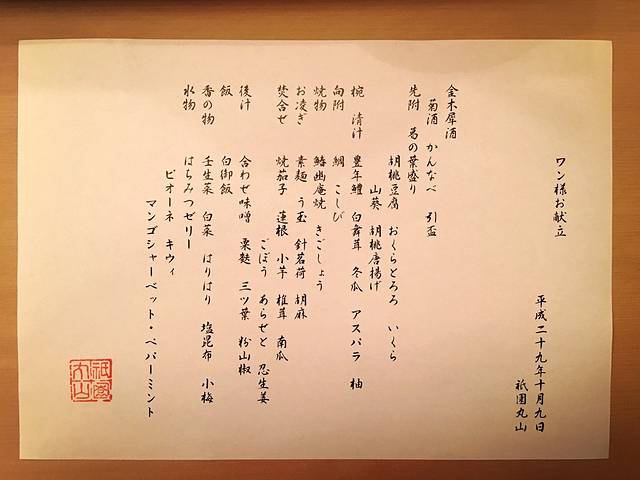 ワン様お献立
平成二十九年十月九日
祇園丸山
金木犀酒
菊酒 かんなべ 引盃
先附 葛の葉盛り
胡桃豆腐 おくらとろろ いくら
山葵 胡桃唐揚げ
椀 清汁 豊年鱧 白舞茸 冬瓜 アスパラ 柚
向附 鯛 こしび
焼物 鰆幽庵焼 きごしょう
お凌ぎ 素麺 う玉 針茗荷 胡麻
焚合せ 焼茄子 蓮根 小芋 椎茸 南瓜
ごぼう あらぜと 忍生姜
後汁 合わせ味噌 粟麩 三ツ葉 粉山椒
飯 白御飯
香の物 壬生菜 白菜 はりはり 塩昆布 小梅
水物 はちみつゼリー
ピオーネ キウィ
マンゴシャーベット・ペパーミント
祇園
丸山